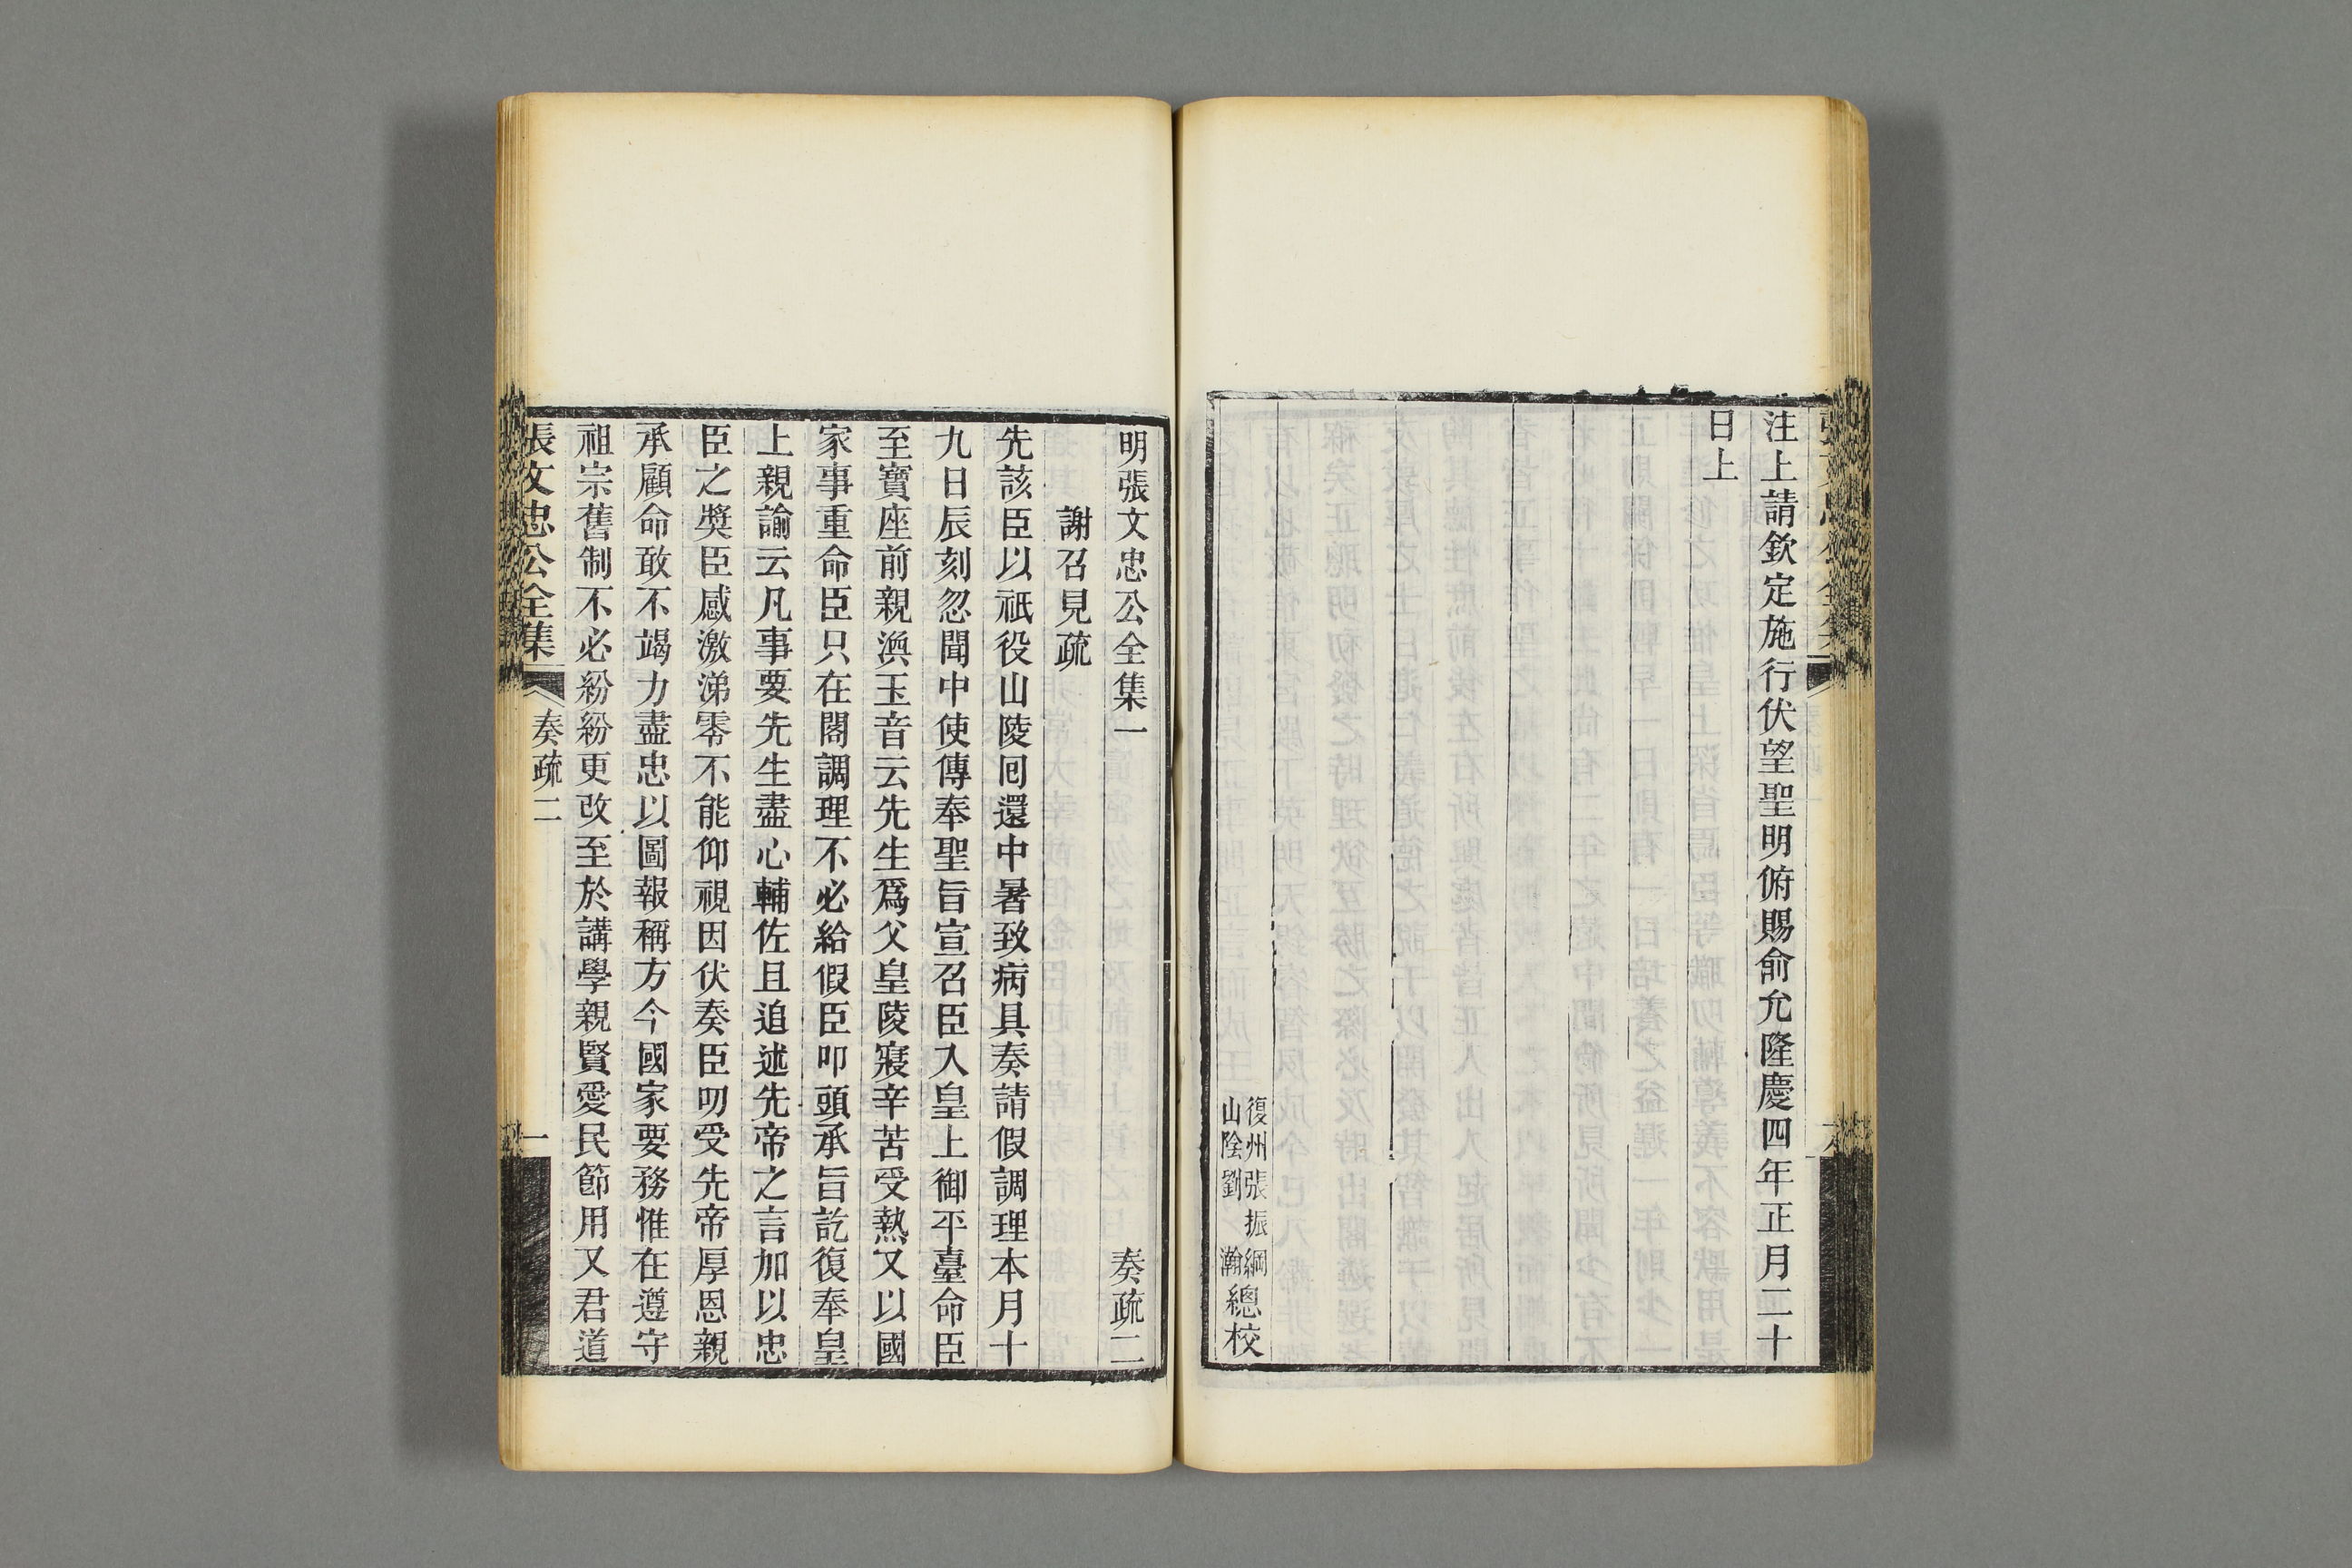 注上請欽定施行伏望聖明俯賜俞允隆慶四年正月二十
日上
復州張振綱
山陰劉瀚
總校
明張文忠公全集一 奏疏二
謝召見疏
先該臣以祇役山陵囘還中暑致病具奏請假調理本月十
九日辰刻忽聞中使傳奉聖旨宣召臣入皇上御平臺命臣
至寶座前親渙玉音云先生爲父皇陵寢辛苦受熱又以國
家事重命臣只在閣調理不必給假臣叩頭承旨訖復奉皇
上親諭云凡事要先生盡心輔佐且追述先帝之言加以忠
臣之奬臣感激涕零不能仰視因伏奏臣叨受先帝厚恩親
承顧命敢不竭力盡忠以圖報稱方今國家要務惟在遵守
祖宗舊制不必紛紛更改至於講學親賢愛民節用又君道
張文忠公全集 奏疏二 一